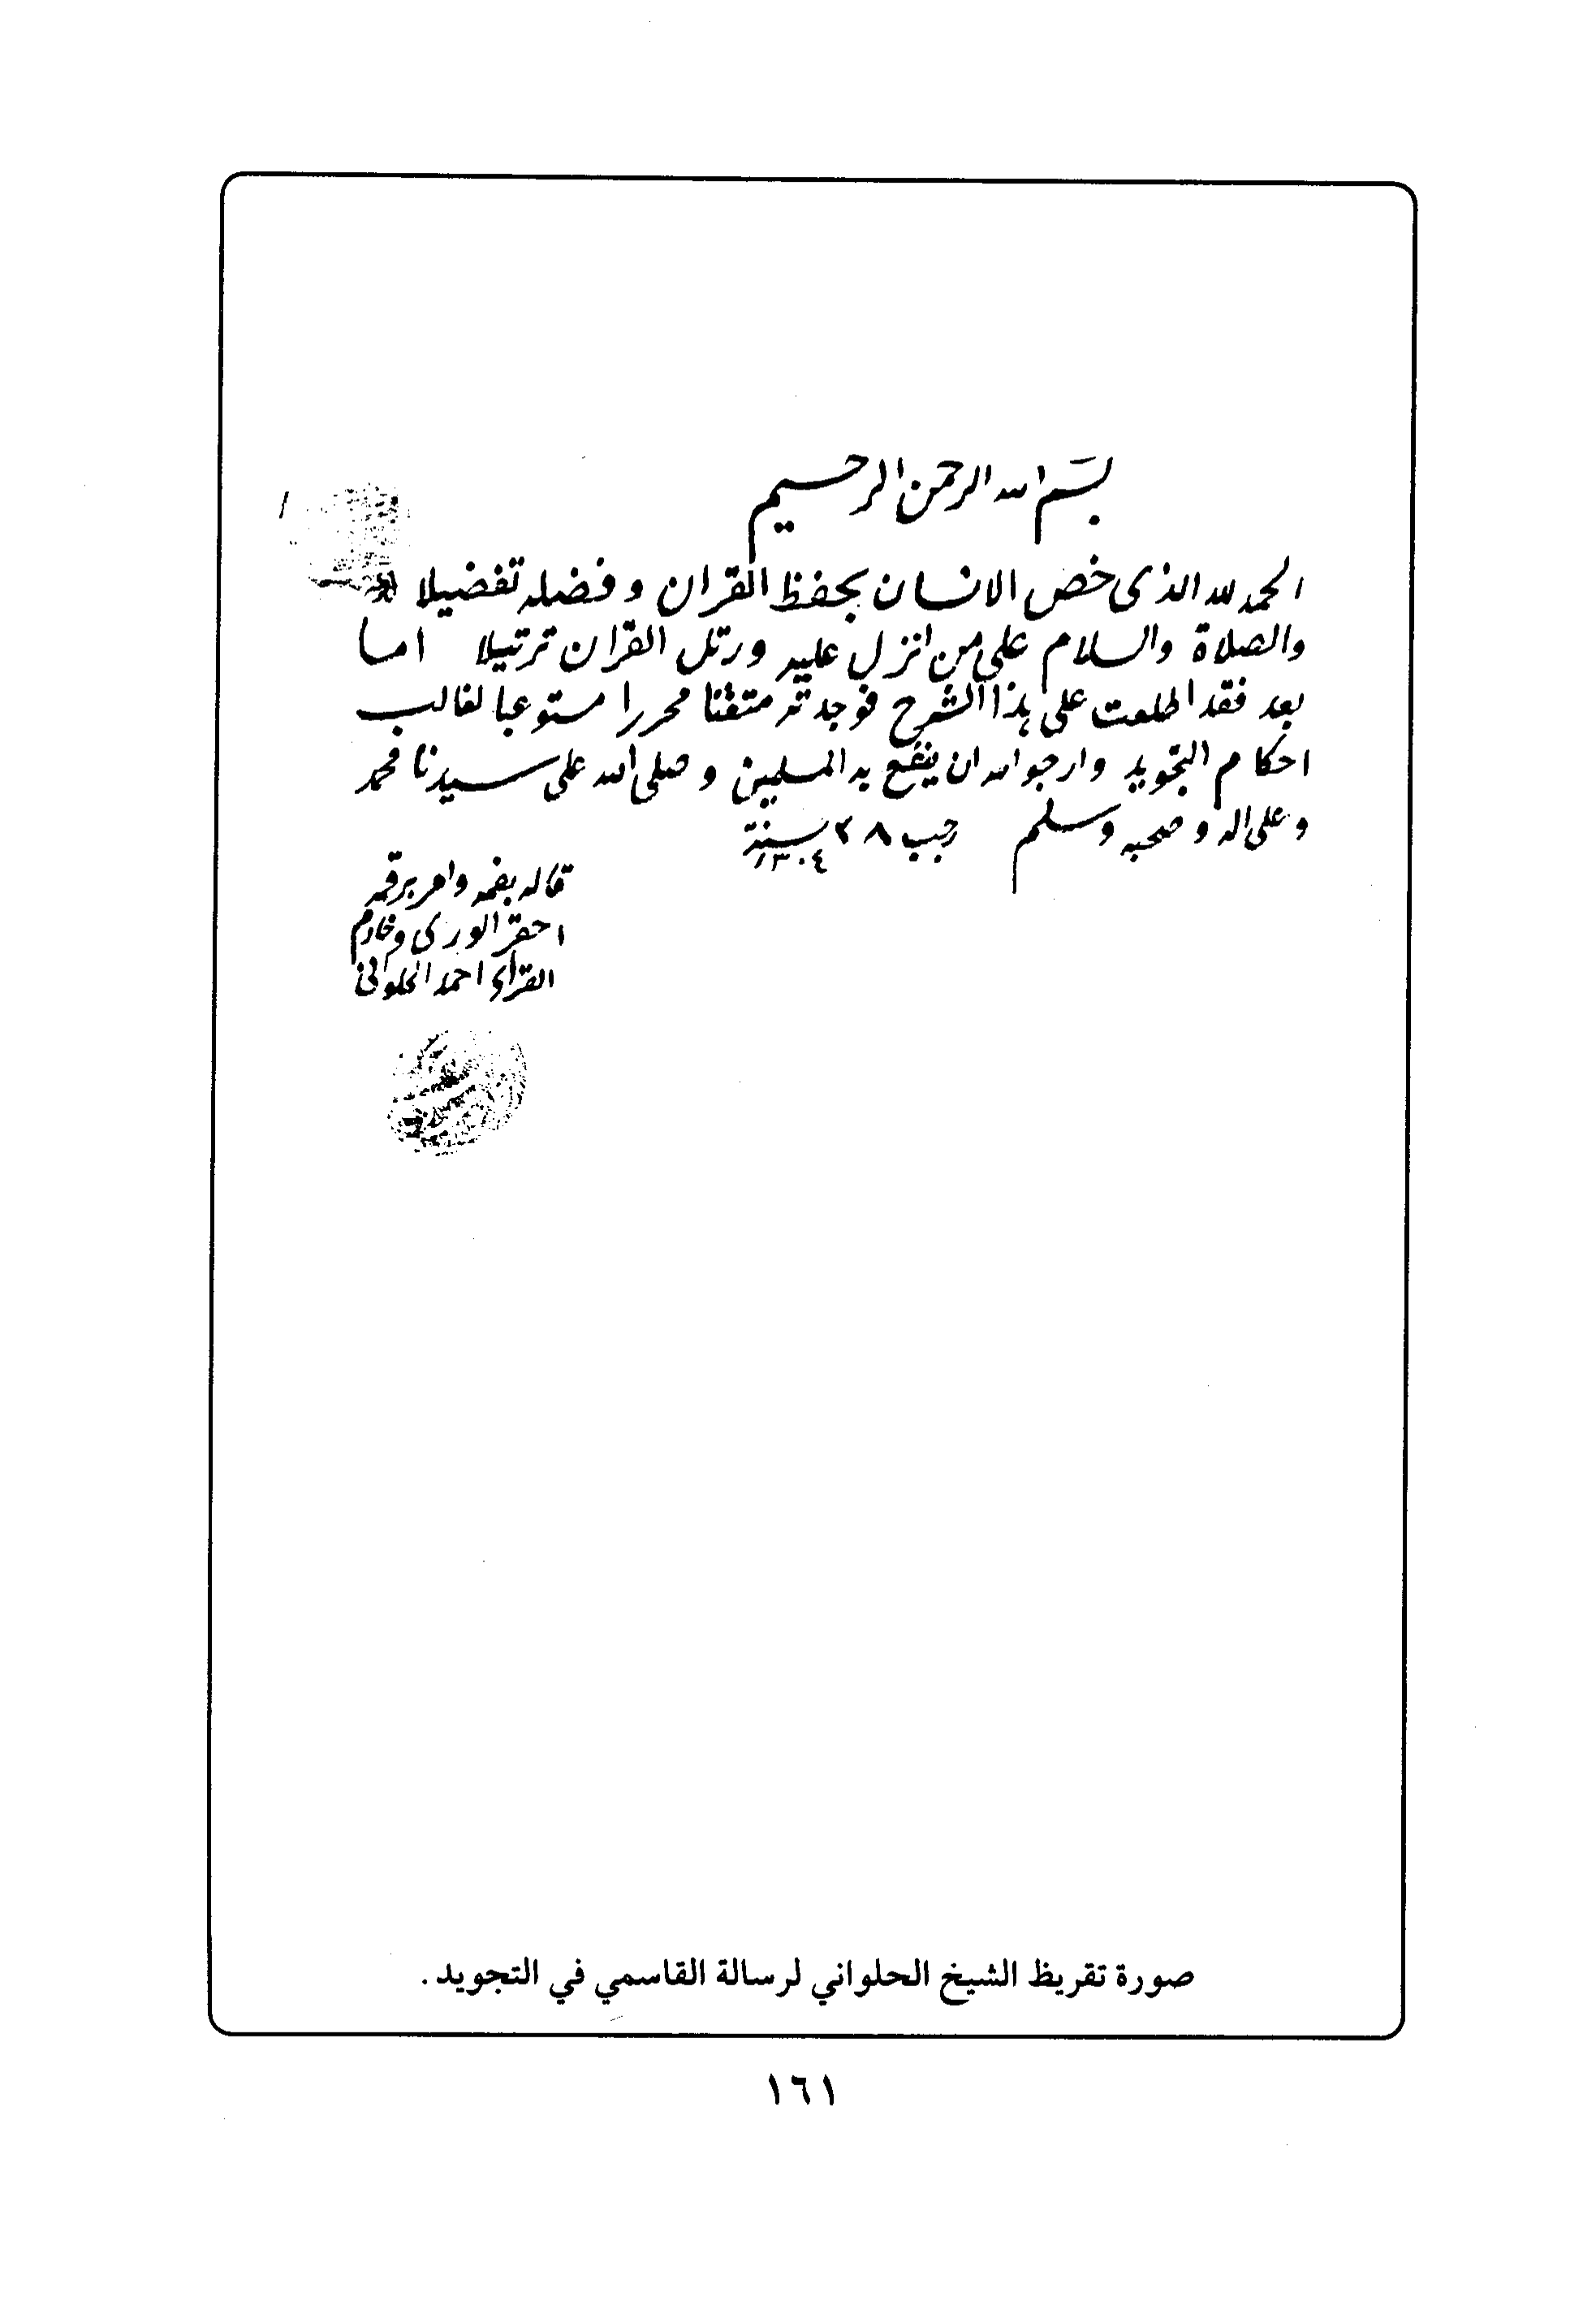 بسم الله الرحمن الرحيم
الحمد لله الذى خص الانسان بحفظ القران وفضله تفضيلا
والصلاة والسلام على من انزل عليه ورتل القران ترتيلا اما
بعد فقد اطلعت على هذا الشرح فوجدته متقنا محررا مستوعبا لغالب
احكام التجويد وارجو الله ان ينفع به المسلمين وصلى الله على سيدنا محمد
وعلى اله وصحبه وسلم رجب ٢٨ سنة
١٣٠٤
قاله بفمه وامر برقمه
احقر الورى وخادم
القراء احمد الحلوانى
صورة تقريظ الشيخ الحلواني لرسالة القاسمي في التجويد .
١٦١